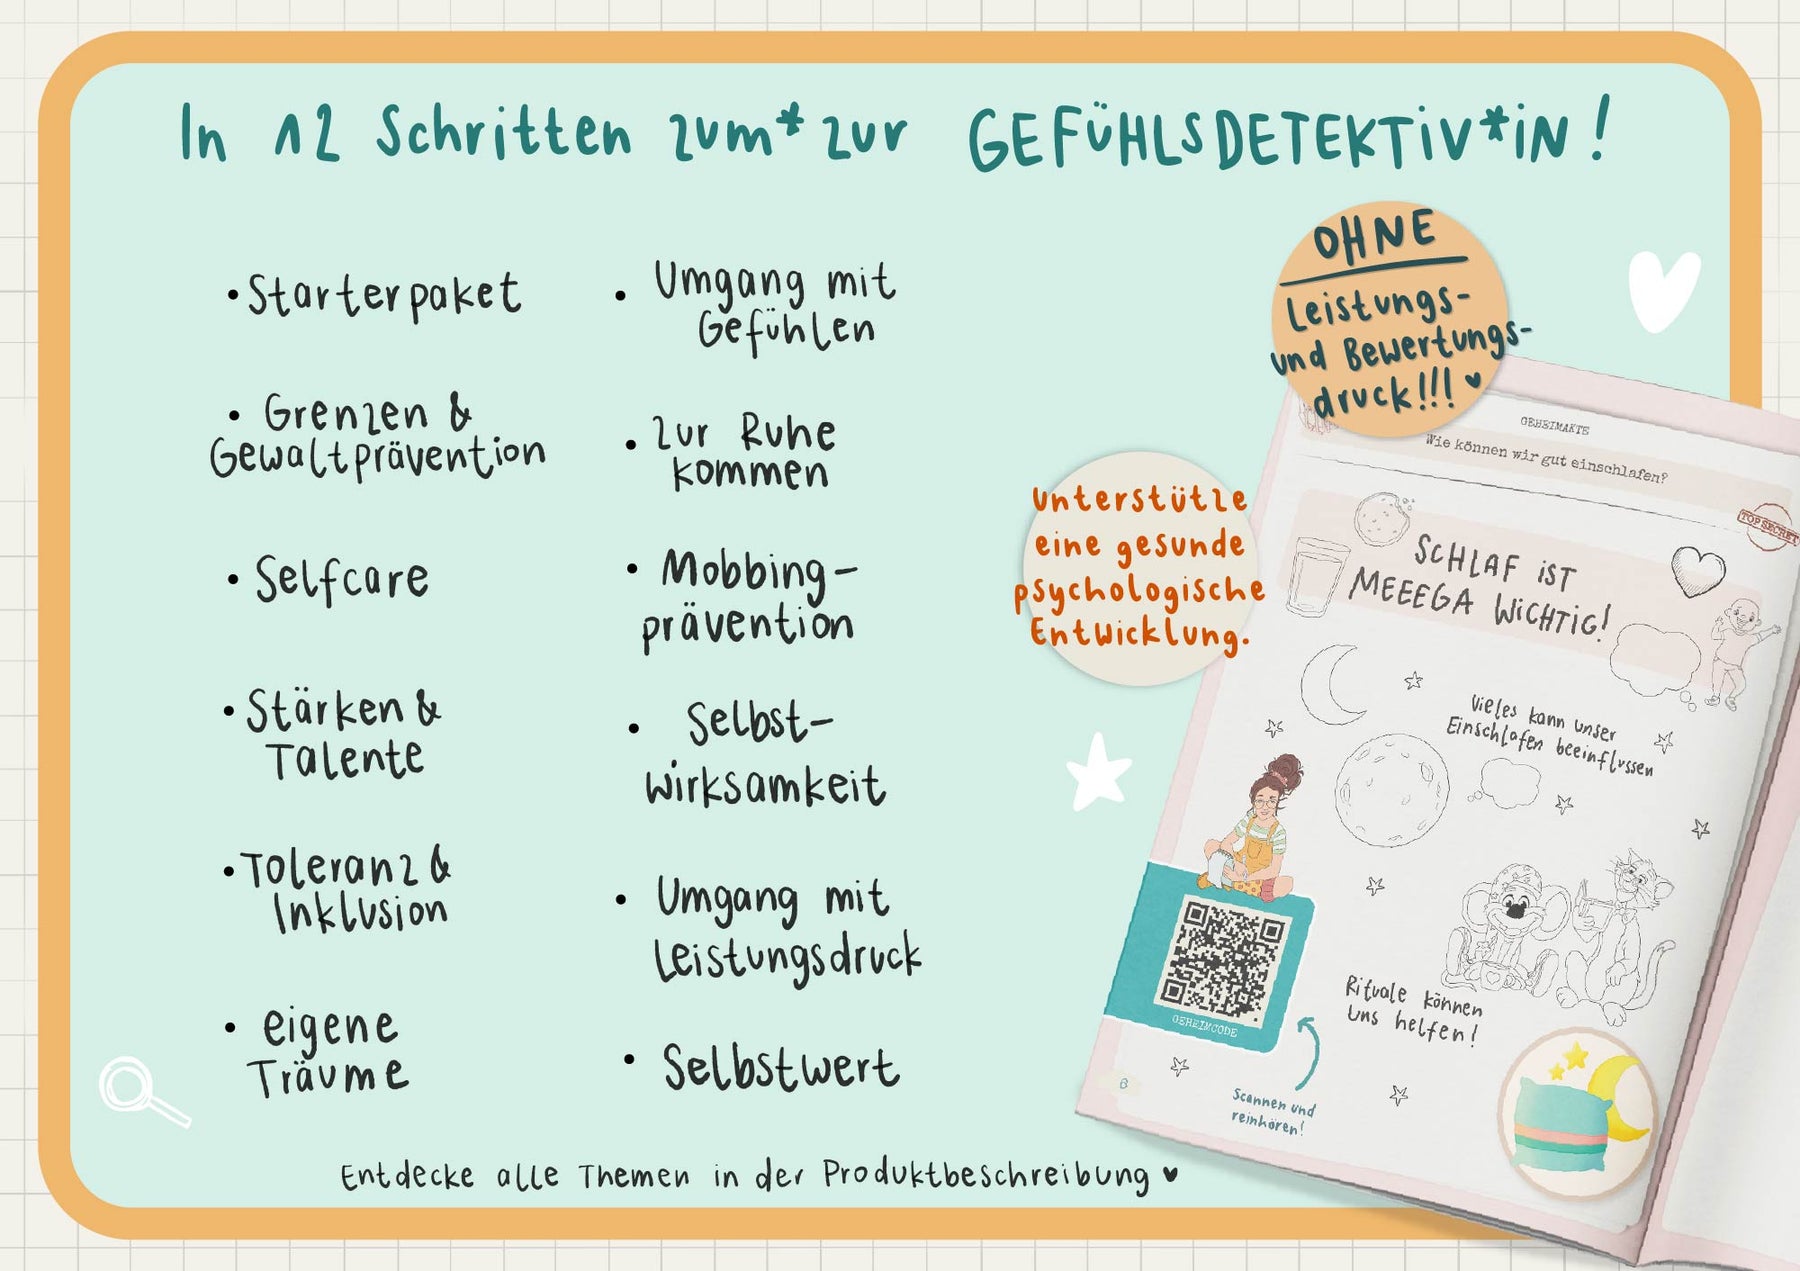 In 12 Schritten zum* zur GEFÜHLSDETEKTIV*iN!
• Starterpaket
• Grenzen &
Gewaltprävention
• Selfcare
• Stärken &
Talente
• Toleranz &
Inklusion
• eigene
Träume
• Umgang mit
Gefühlen
• Zur Ruhe
kommen
• Mobbing-
prävention
• Selbst-
wirksamkeit
• Umgang mit
Leistungsdruck
• Selbstwert
Entdecke alle Themen in der Produktbeschreibung ♥
OHNE
Leistungs-
und Bewertungs-
druck!!! ♥
Unterstütze
eine gesunde
psychologische
Entwicklung.
GEHEIMAKTE
Wie können wir gut einschlafen?
TOP SECRET
SCHLAF iST
MEEEGA WiCHTiG!
Vieles kann unser
Einschlafen beeinflussen
Rituale können
uns helfen!
GEHEIMCODE
Scannen und
reinhören!